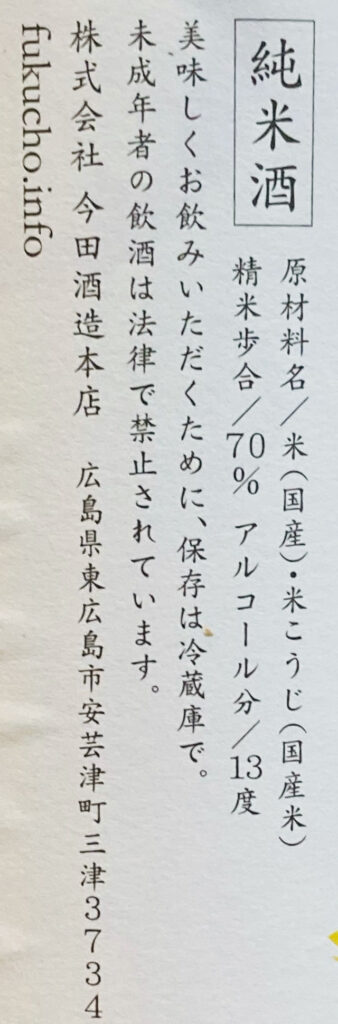 純米酒
原材料名／米(国産)・米こうじ(国産米)
精米歩合／70% アルコール分／13度
美味しくお飲みいただくために、保存は冷蔵庫で。
未成年者の飲酒は法律で禁止されています。
株式会社 今田酒造本店 広島県東広島市安芸津町三津3734
fukucho.info